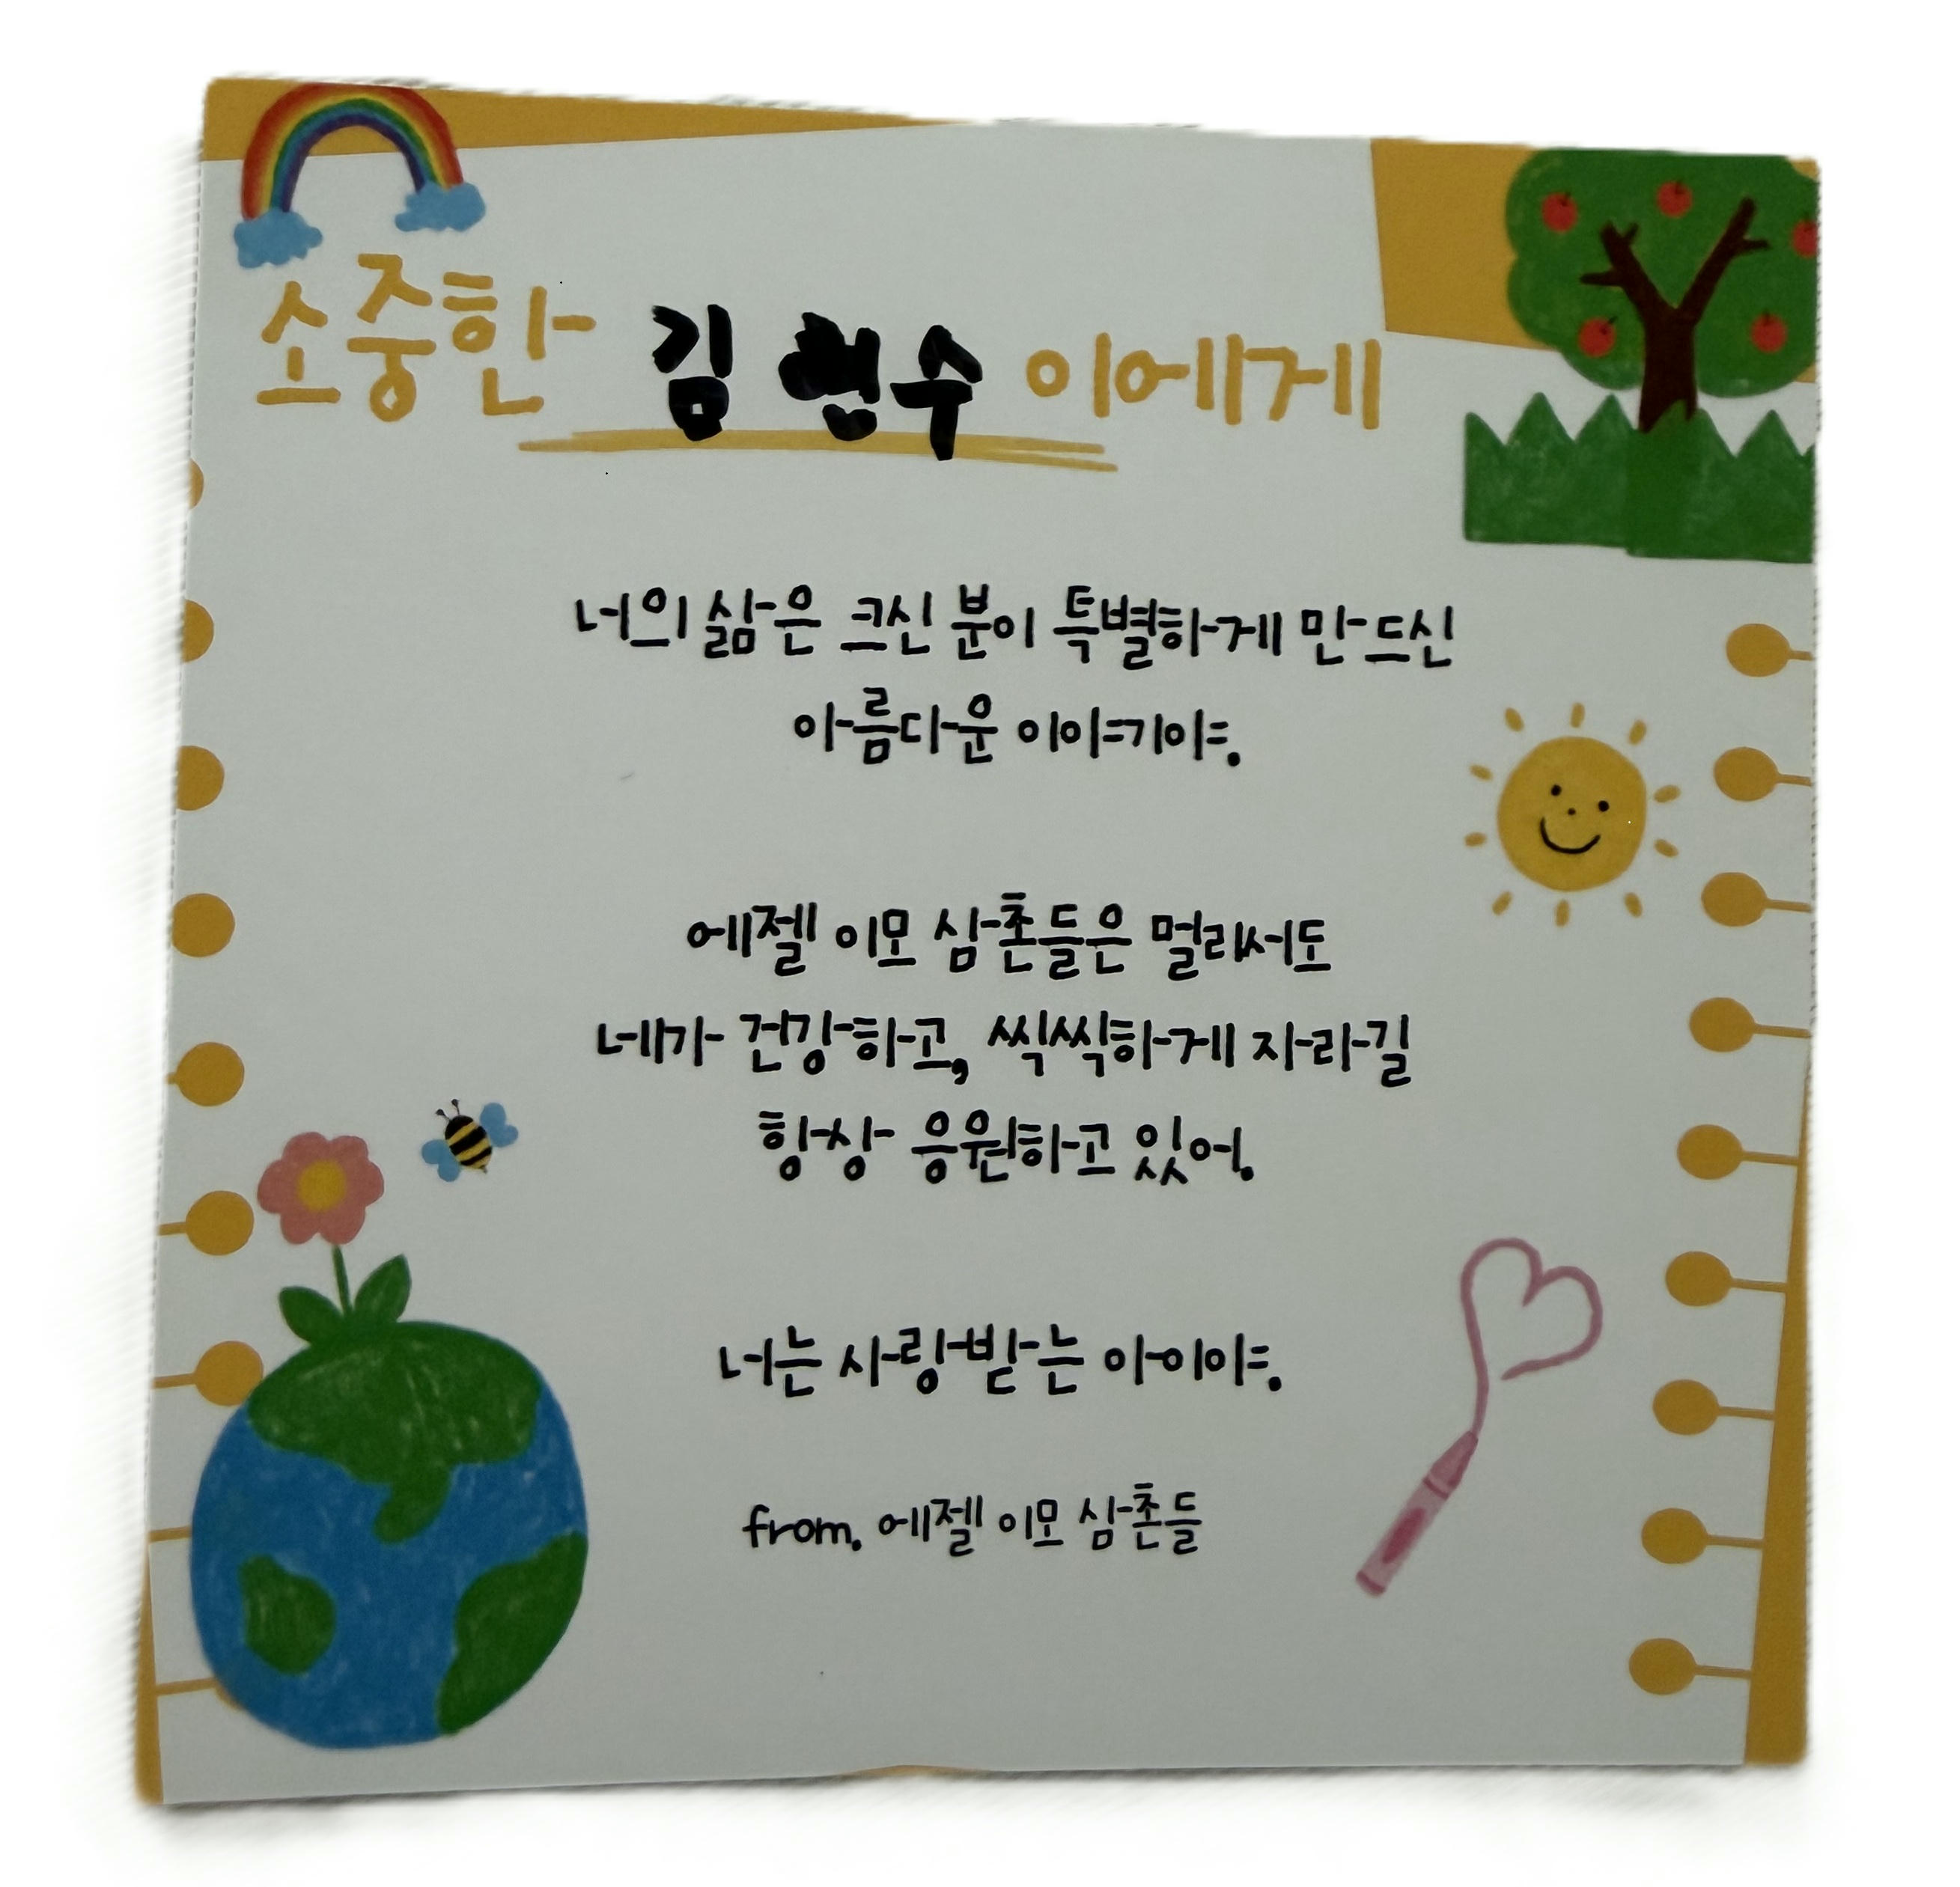 소중한 김현수 이에게
너의 삶은 크신 분이 특별하게 만드신
아름다운 이야기야.
에젤 이모 삼촌들은 멀리서도
네가 건강하고, 씩씩하게 자라길
항상 응원하고 있어.
너는 사랑받는 아이야.
from. 에젤 이모 삼촌들